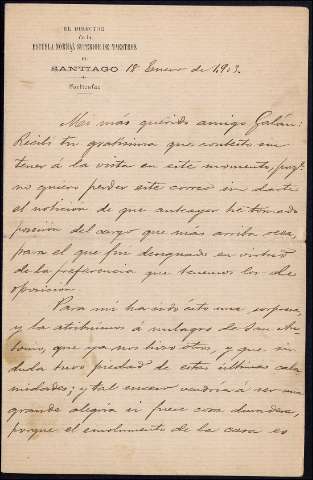 EL DIRECTOR
de la
ESCUELA NORMAL SUPERIOR DE MAESTROS
DE
SANTIAGO 18 Enero de 1903.
Particular
Mi más querido amigo Galán:
Recibí tu gratísima que contesto sin
tener á la vista en este momento,
no quiero perder este correo sin darte
el notición de que anteayer he tomado
posesión del cargo que más arriba
para el que fuí designado en virtud
de la preferencia que tenemos los de
oposición.
Para mi ha sido esto una sorpresa,
y la atribuimos á milagro de San
Antonio, que ya nos hizo otros, y que sin
duda tuvo piedad de estas últimas cala
midades; y tal suceso vendría á ser una
grande alegría si fuese cosa duradera,
porque el emolumento de la casa es